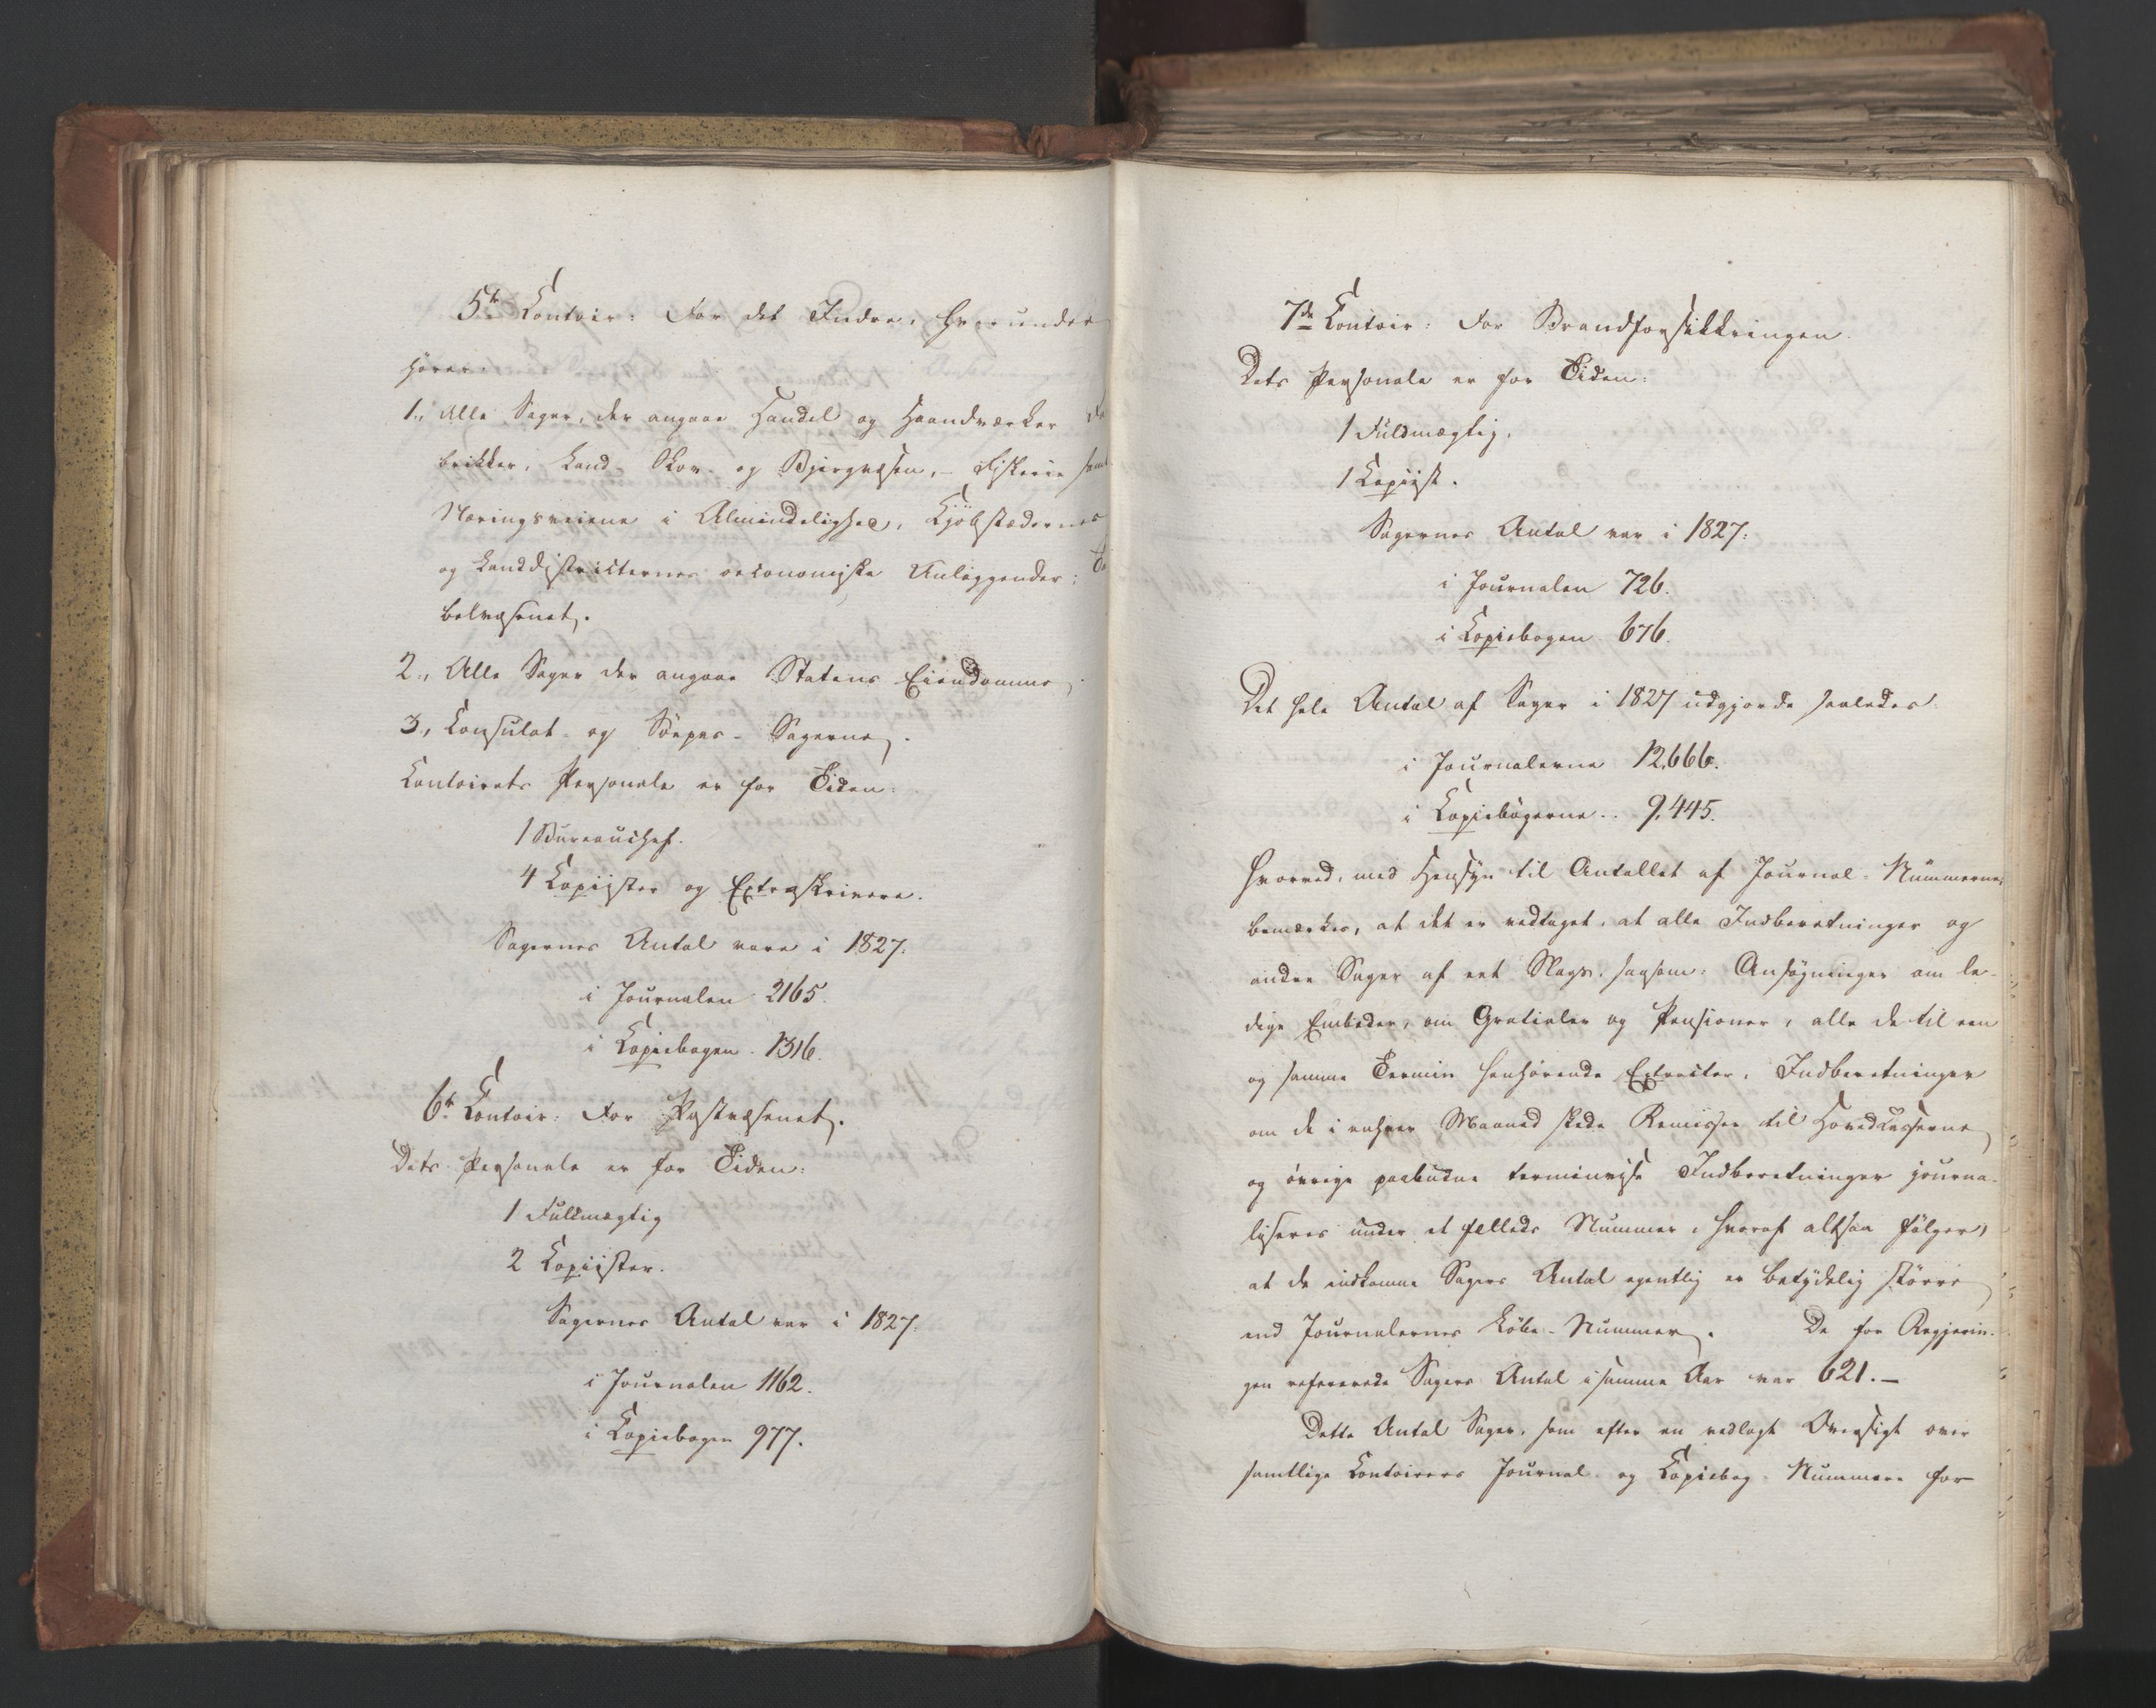 5te Contoir: For det Indre, hvorunder
hører:
1., Alle Sager, der angaae Handel og Haandværker Fa
brikker, Land- Skov- og Bjergvæsen, Fiskerie samt
Næringsveiene i Almindelighed, Kjöbstædernes
og Landdistricternes oeconomiske Anliggender;
belvæsenet.
2., Alle Sager der angaae Statens Eiendomme
3., Consulat- og Söepas-Sagerne.
Contoirets Personale er for Tiden:
1 Bureauchef.
4 Copiister og Extraskrivere.
Sagernes Antal vare i 1827:
i Journalen 2165.
i Copiebogen 1316.
6te Contoir: For Postvæsenet.
Dets Personale er for Tiden:
1 Fuldmægtig
2 Copiister.
Sagernes Antal var i 1827.
i Journalen 1162.
i Copiebogen 977.
7de Contoir: For Brandforsikkringen.
Dets Personale er for Tiden:
1 Fuldmægtig.
1 Copiist.
Sagernes Antal var i 1827:
i Journalen 726.
i Copiebogen 676.
Det hele Antal af Sager i 1827 udgjorde saaledes:
i Journalerne 12,666.
i Copiebögerne .. 9,445.
Hvorved, med Hensyn til Antallet af Journal-Nummerne,
bemærkes, at det er vedtaget, at alle Indberetninger og
andre Sager af eet Slags, saasom: Ansøgninger om le-
dige Embeder, om Gratialer og Pensioner, alle de til een
og samme Termin henhørende Extracter, Indberetninger
om de i enhver Maaned skede Remisser til Hovedcasserne
og övrige paabudne terminvise Indberetninger journa-
liseres under et fælleds Nummer, hvoraf altsaa fölger,
at de indkomne Sagers Antal egentlig er betydelig större
end Journalernes Löbe-Nummer. De for Regjerin-
gen refererede Sagers Antal i samme Aar var 621.-
Dette Antal Sager, som efter en vedlagt Oversigt over
samtlige Contoirers Journal- og Copiebog-Nummere for